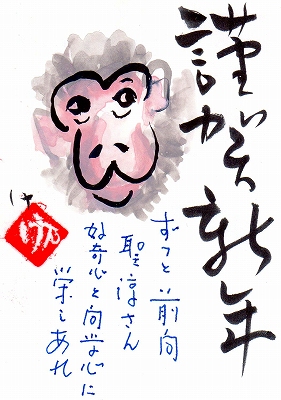 謹賀新年
ずっと前向
聖淳さん
好奇心と向学心に
栄あれ
け